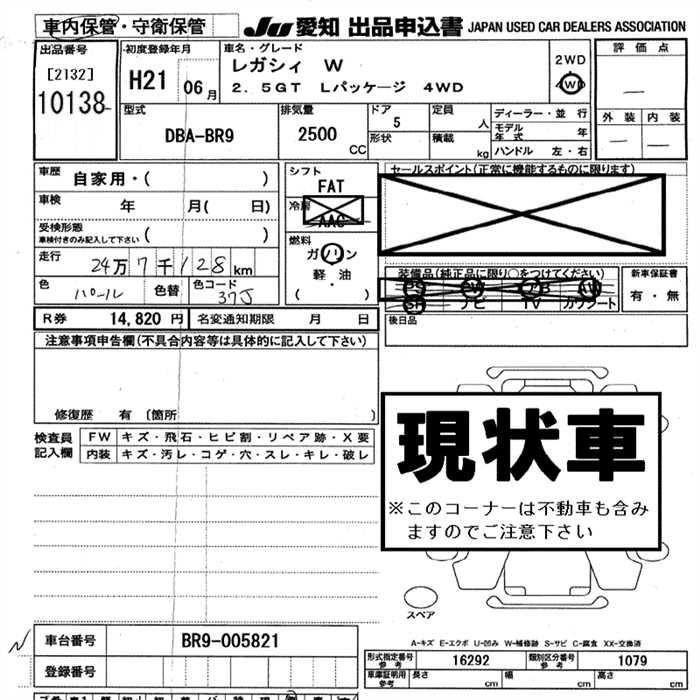 車内保管・守衛保管 JU 愛知 出品申込書 JAPAN USED CAR DEALERS ASSOCIATION
出品番号 初度登録年月 車名・グレード 評価点
[2132] H21 06月 レガシィ W 2WD
10138 2.5GT Lパッケージ 4WD 4WD
外装 内装
型式 排気量 ドア 定員 ディーラー・並行
DBA-BR9 2500 CC 5 人 モデル年式 年
形状 積載 kg ハンドル 左・右
車歴 自家用・( ) シフト セールスポイント(正常に機能するものに限ります)
FAT
車検 年 月( 日) 冷房
AAC
受検形態
車検付きのみ記入して下さい ( ) 燃料
走行 24万7千128km ガソリン 装備品(純正品に限り○をつけてください) 新車保証書
軽・油 PS PW ナビ TV カワシート AW SR 有・無
色 パール 色替 色コード 37J ( ) 後日品
R券 14,820円 名変通知期限 月 日
注意事項申告欄(不具合内容等は具体的に記入して下さい)
修復歴 有 〔箇所 〕
現状車
※このコーナーは不動車も含み
ますのでご注意下さい
検査員 FW キズ・飛石・ヒビ割・リペア跡・X要
記入欄 内装 キズ・汚レ・コゲ・穴・スレ・キレ・破レ
スペア
A-キズ E-エクボ U-凹み W-補修跡 S-サビ C-腐食 XX-交換済
車台番号 BR9-005821
型式指定番号 参考 16292 類別区分番号 参考 1079
登録番号 車庫証明用 参考 長さ cm 幅 cm 高さ cm